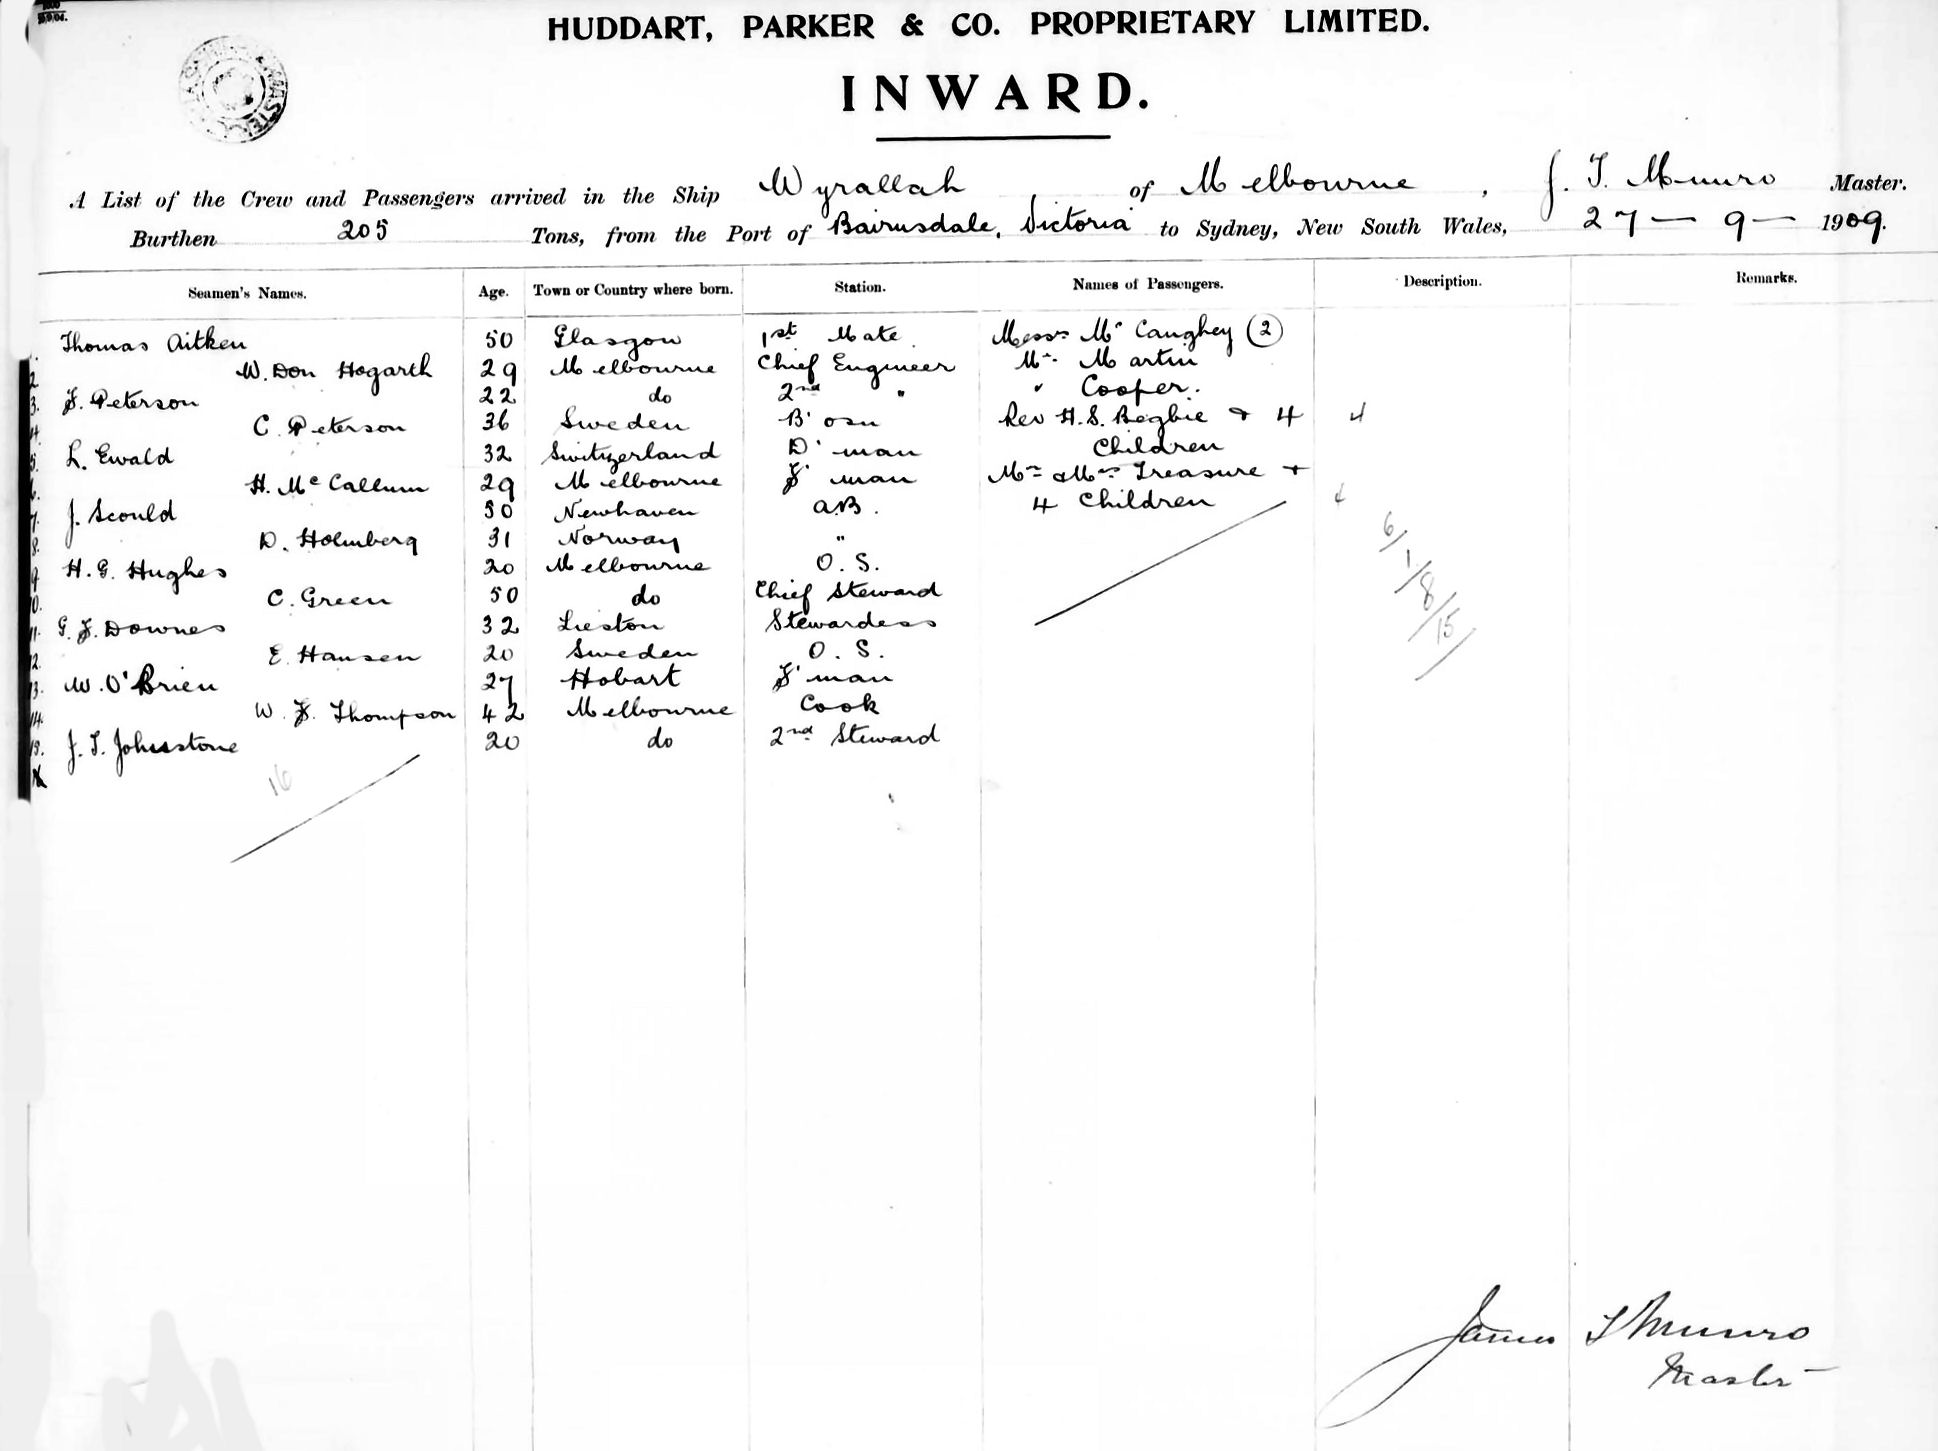 HUDDART, PARKER & CO. PROPRIETARY LIMITED.
INWARD.
A List of the Crew and Passengers arrived in the Ship Wyrallah, of Melbourne, J. T. Munro Master.
Burthen 205 Tons, from the Port of Bairnsdale, Victoria to Sydney, New South Wales, 27 — 9 — 1909.
Seamen's Names. Age. Town or Country where born. Station. Names of Passengers. Description. Remarks.
1. Thomas Aitken 50 Glasgow 1st Mate Messrs McCaughey (2)
2. W. Don Hogarth 29 Melbourne Chief Engineer Mr. Martin
3. F. Peterson 22 do 2nd " " Cooper.
4. C. Peterson 36 Sweden B'osn Rev H. S. Begbie + 4 4
5. L. Ewald 32 Switzerland D'man Children
6. H. McCallum 29 Melbourne F'man Mr & Mrs Treasure +
7. J. Scould 30 Newhaven A.B. 4 Children 4
8. D. Holmberg 31 Norway "
9. H. G. Hughes 20 Melbourne O. S.
10. C. Green 50 do Chief Steward
11. G. F. Downes 32 Stewardess
12. E. Hansen 20 Sweden O. S.
13. W. O'Brien 27 Hobart F'man
14. W. F. Thompson 42 Melbourne Cook
15. J. T. Johnstone 20 do 2nd Steward
16
6/1/8/15/
James T Munro
Master